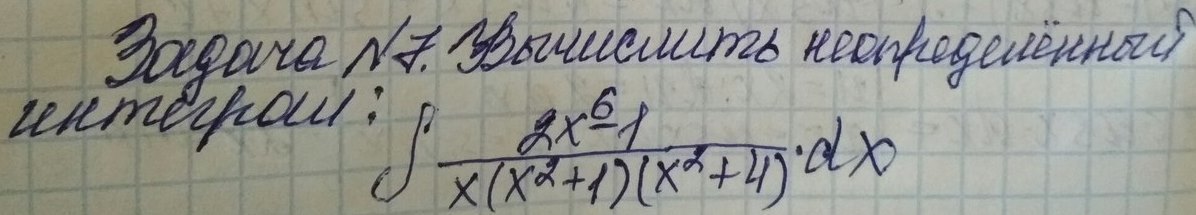 Задача №7. Вычислить неопределённый
интеграл:
∫ (2x^6-1)/(x(x^2+1)(x^2+4)) · dx